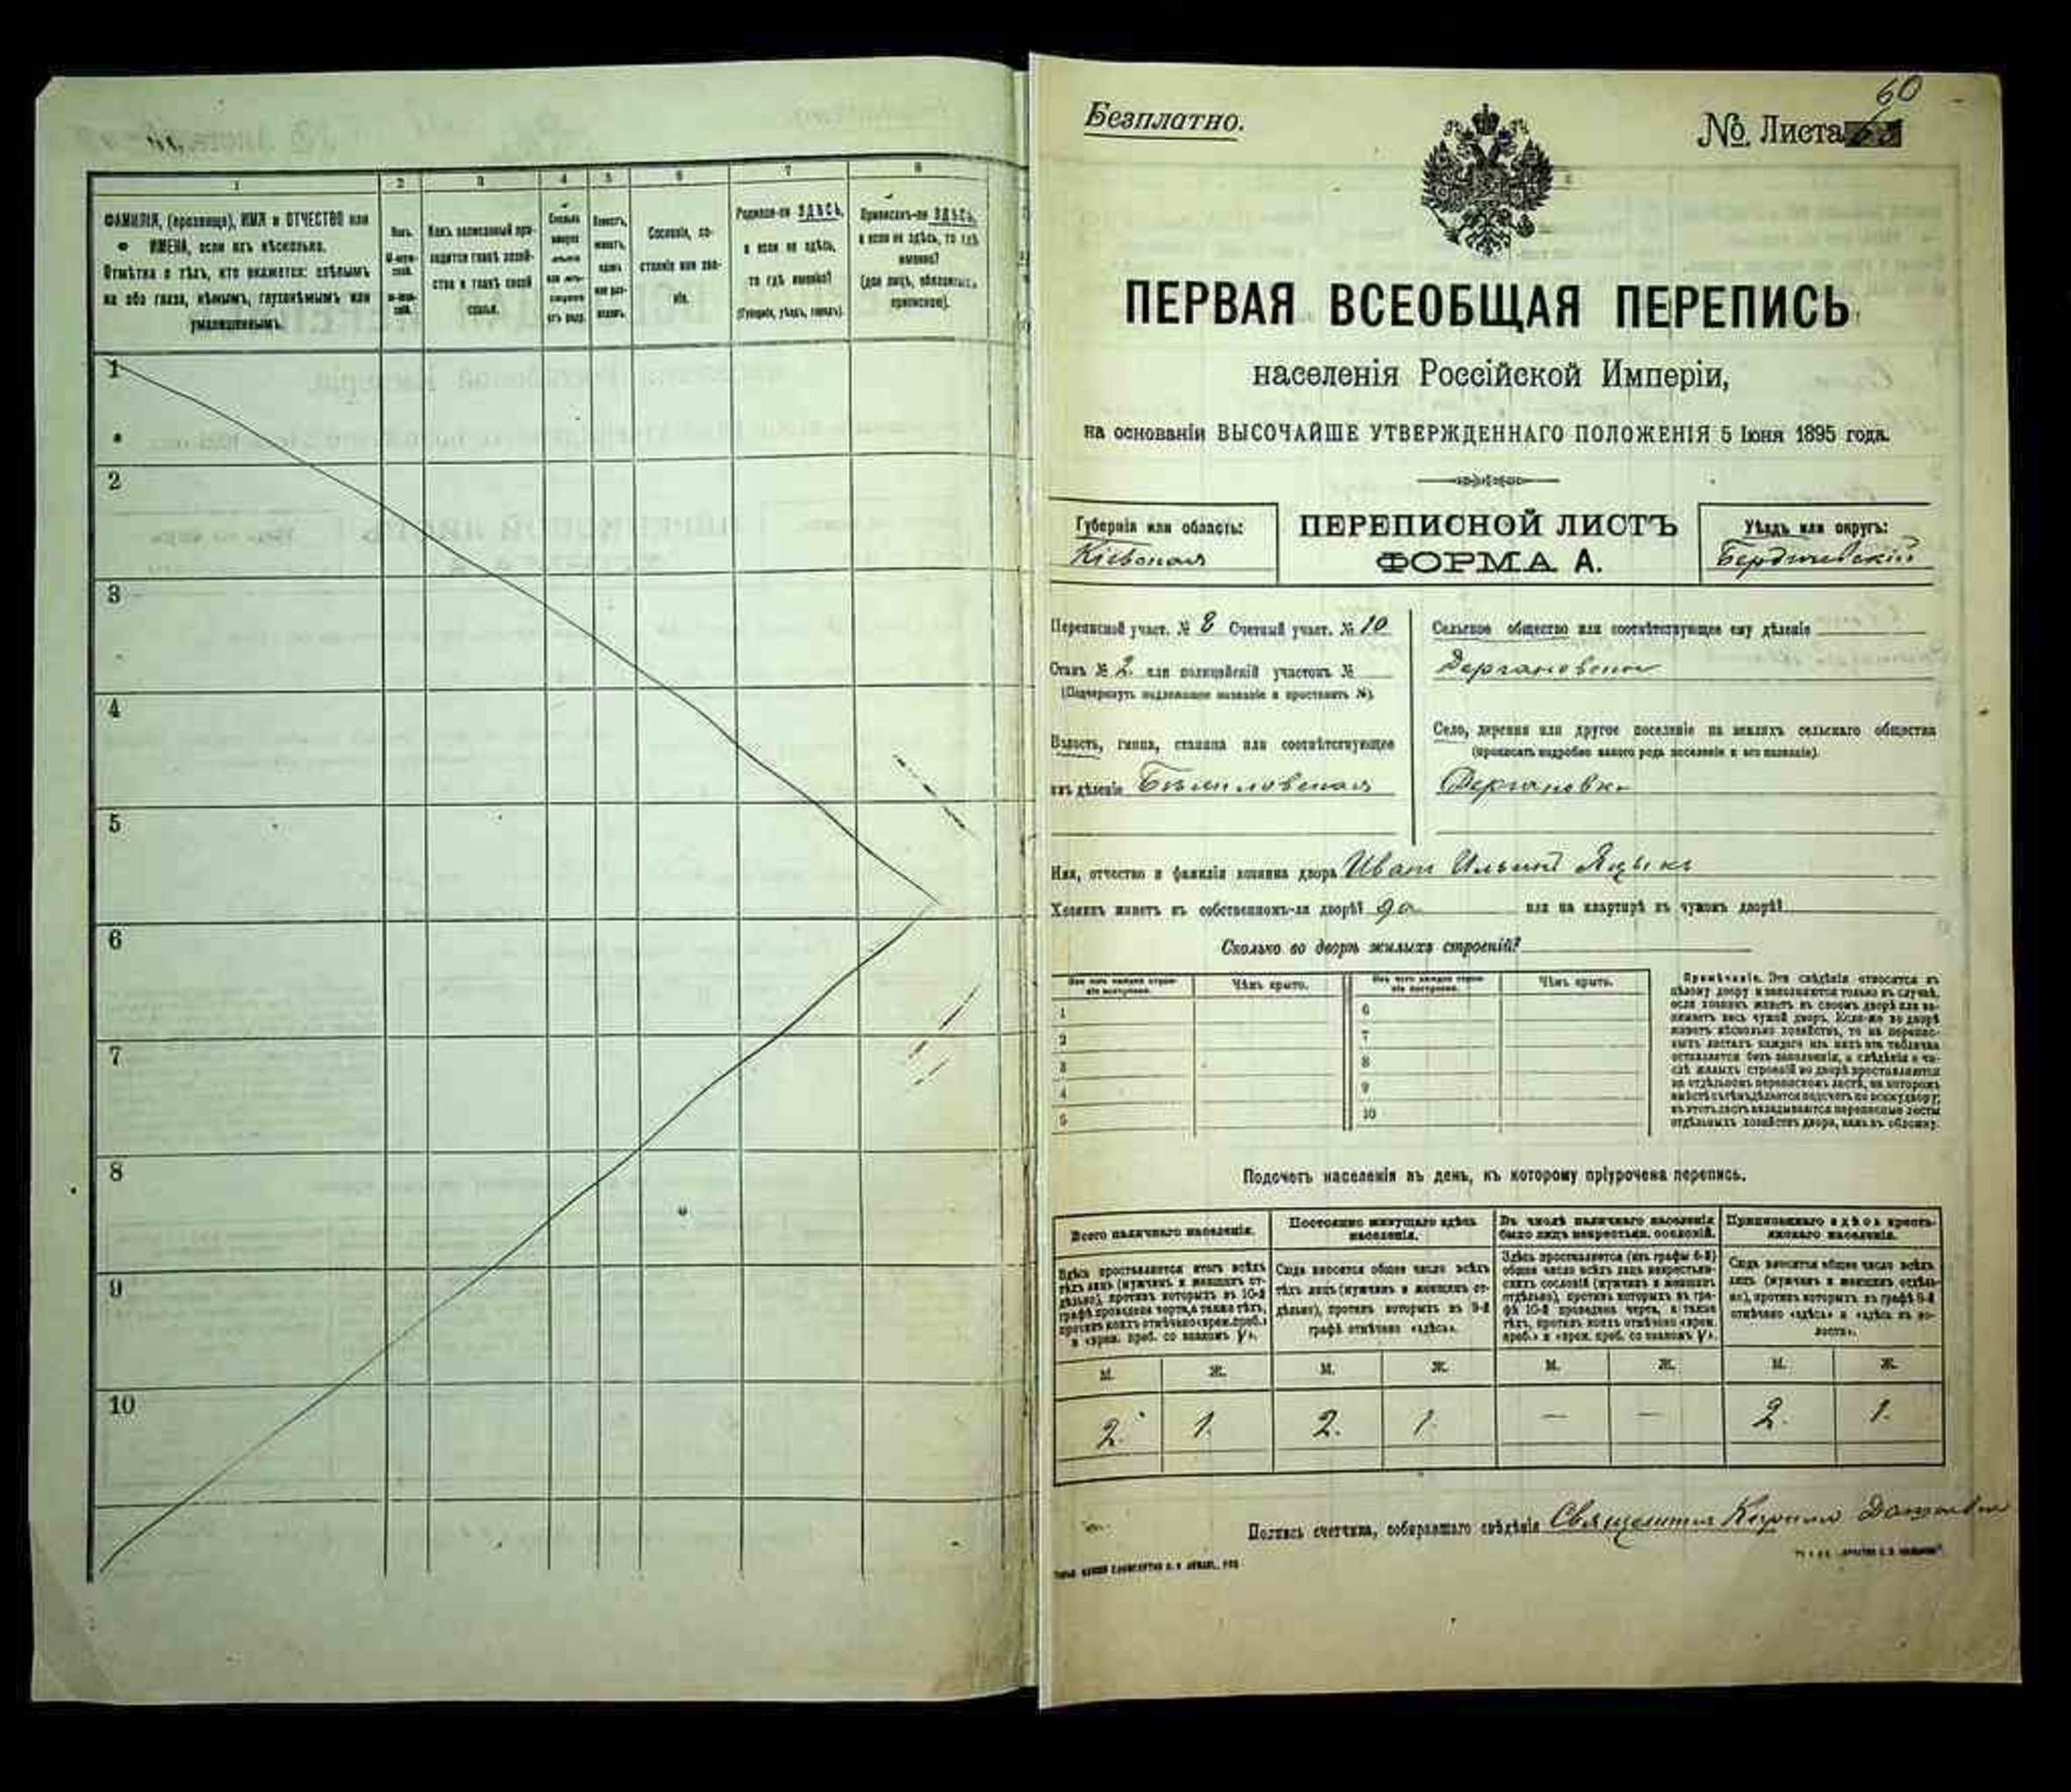 1 2 3 4 5 6 7 8
ФАМИЛІЯ, (прозвище), ИМЯ и ОТЧЕСТВО или
ИМЕНА, если ихъ нѣсколько.
Отмѣтка о тѣхъ, кто окажется: слѣпымъ
на оба глаза, нѣмымъ, глухонѣмымъ или
умалишеннымъ.
Полъ.
М-муж-
ской.
ж-жен-
скій.
Какъ записанный при-
ходится главѣ хозяй-
ства и главѣ своей
семьи.
Сколько
минуло
лѣтъ
или мѣ-
сяцевъ
отъ роду.
Холостъ,
женатъ,
вдовъ
или раз-
веденъ.
Сословіе, со-
стояніе или зва-
ніе.
Родился-ли ЗДѢСЬ,
а если не здѣсь,
то гдѣ именно?
(Губернія, уѣздъ, городъ).
Приписанъ-ли ЗДѢСЬ,
а если не здѣсь, то гдѣ
именно?
(для лицъ, обязанныхъ
припискою).
1
2
3
4
5
6
7
8
9
10
60
Безплатно.
№ Листа
ПЕРВАЯ ВСЕОБЩАЯ ПЕРЕПИСЬ
населенія Россійской Имперіи,
на основаніи ВЫСОЧАЙШЕ УТВЕРЖДЕННАГО ПОЛОЖЕНІЯ 5 Іюня 1895 года.
Губернія или область:
Кіевская
ПЕРЕПИСНОЙ ЛИСТЪ
ФОРМА А.
Уѣздъ или округъ:
Бердичевскій
Переписной участ. № 8 Счетный участ. № 10
Станъ № 2. или полицейскій участокъ №
(Подчеркнуть надлежащее названіе и проставить №).
Волость, гмина, станица или соотвѣтствующее
имъ дѣленіе Бѣлиловская
Сельское общество или соотвѣтствующее ему дѣленіе
Дергановское
Село, деревня или другое поселеніе на земляхъ сельскаго общества
(прописать подробно какого рода поселеніе и его названіе).
Дергановка
Имя, отчество и фамилія хозяина двора Иванъ Ильинъ Языкъ
Хозяинъ живетъ въ собственномъ-ли дворѣ? да или на квартирѣ въ чужомъ дворѣ?
Сколько во дворѣ жилыхъ строеній?
Изъ чего каждое строе-
ніе построено.
Чѣмъ крыто.
Изъ чего каждое строе-
ніе построено.
Чѣмъ крыто.
1 6
2 7
3 8
4 9
5 10
Примѣчаніе. Эти свѣдѣнія относятся къ
цѣлому двору и заполняются только въ случаѣ,
если хозяинъ живетъ въ своемъ дворѣ или за-
нимаетъ весь чужой дворъ. Если-же во дворѣ
живетъ нѣсколько хозяйствъ, то на перепис-
ныхъ листахъ каждаго изъ нихъ эта табличка
оставляется безъ заполненія, а свѣдѣнія о чи-
слѣ жилыхъ строеній во дворѣ проставляются
на отдѣльномъ переписномъ листѣ, на которомъ
вмѣстѣ съ тѣмъ дѣлается подсчетъ по всему двору;
въ этотъ листъ вкладываются переписные листы
отдѣльныхъ хозяйствъ двора, какъ въ обложку.
Подсчетъ населенія въ день, къ которому пріурочена перепись.
Всего наличнаго населенія.
Здѣсь проставляется итогъ всѣхъ
тѣхъ лицъ (мужчинъ и женщинъ от-
дѣльно), противъ которыхъ въ 10-й
графѣ проведена черта, а также тѣхъ,
противъ коихъ отмѣчено «врем. преб.»
и «врем. преб. со знакомъ V».
Постоянно живущаго здѣсь
населенія.
Сюда вносится общее число всѣхъ
тѣхъ лицъ (мужчинъ и женщинъ от-
дѣльно), противъ которыхъ въ 9-й
графѣ отмѣчено «здѣсь».
Въ числѣ наличнаго населенія
было лицъ некрестьян. сословій.
Здѣсь проставляется (изъ графы 6-й)
общее число всѣхъ лицъ некрестьян-
скихъ сословій (мужчинъ и женщинъ
отдѣльно), противъ которыхъ въ гра-
фѣ 10-й проведена черта, а также
тѣхъ, противъ коихъ отмѣчено «врем.
преб.» и «врем. преб. со знакомъ V».
Приписаннаго здѣсь кресть-
янскаго населенія.
Сюда вносится общее число всѣхъ
лицъ (мужчинъ и женщинъ отдѣль-
но), противъ которыхъ въ графѣ 8-й
отмѣчено «здѣсь» и «здѣсь въ во-
лости».
М. Ж. М. Ж. М. Ж. М. Ж.
2. 1. 2. 1. — — 2. 1.
Подпись счетчика, собиравшаго свѣдѣнія Священникъ Кирилло